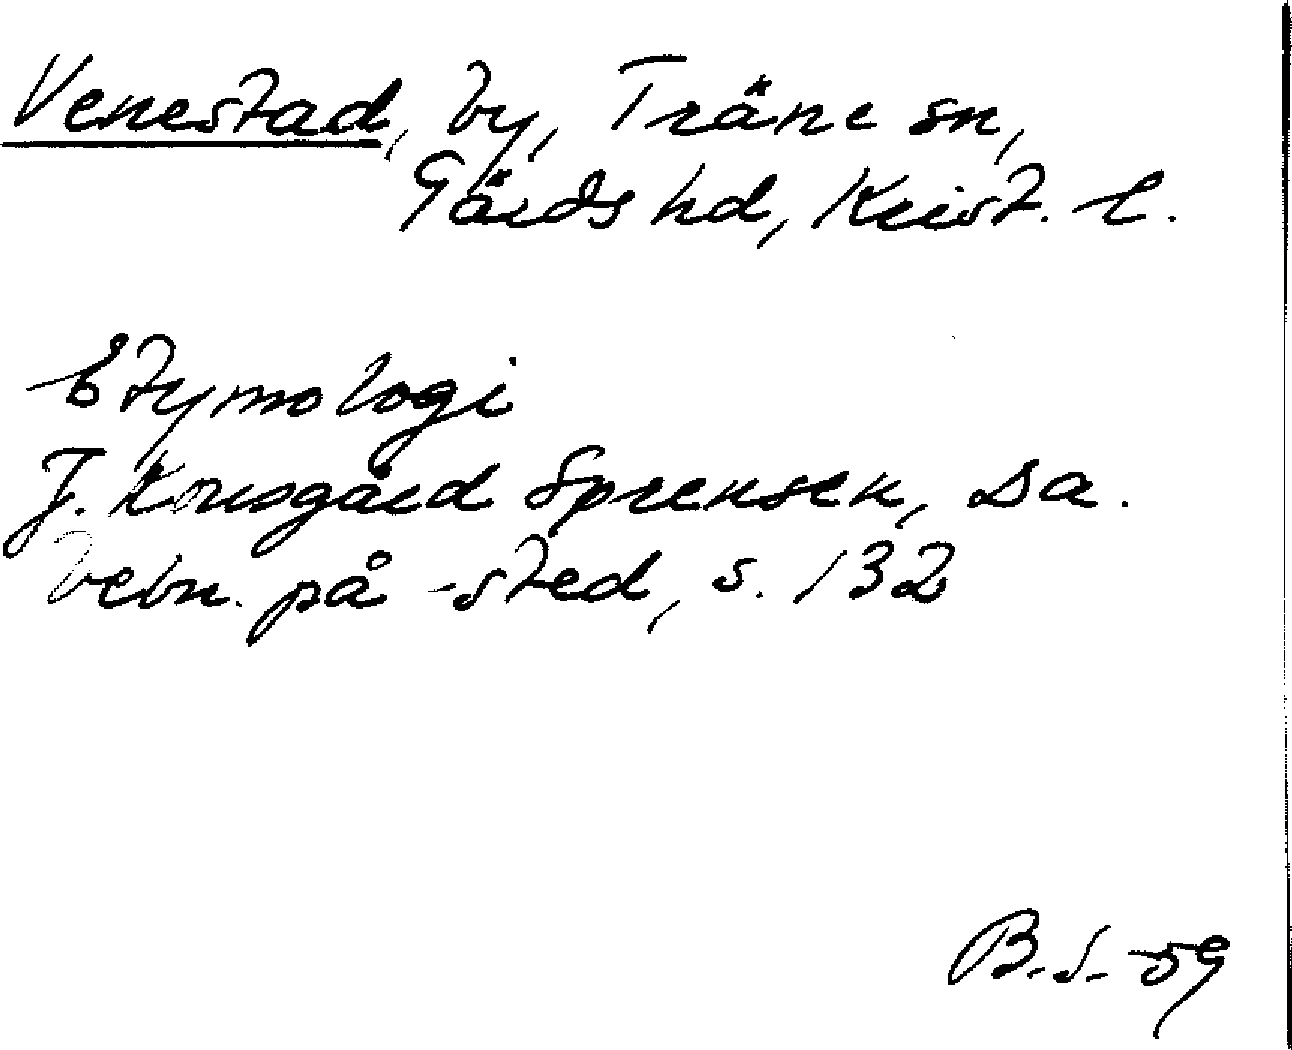 Venestad, by, Träne sn,
Gärds hd, Krist. l.
Etymologi
J. Kousgård Sørensen, Da.
bebn. på -sted, s. 132
B.S. 59